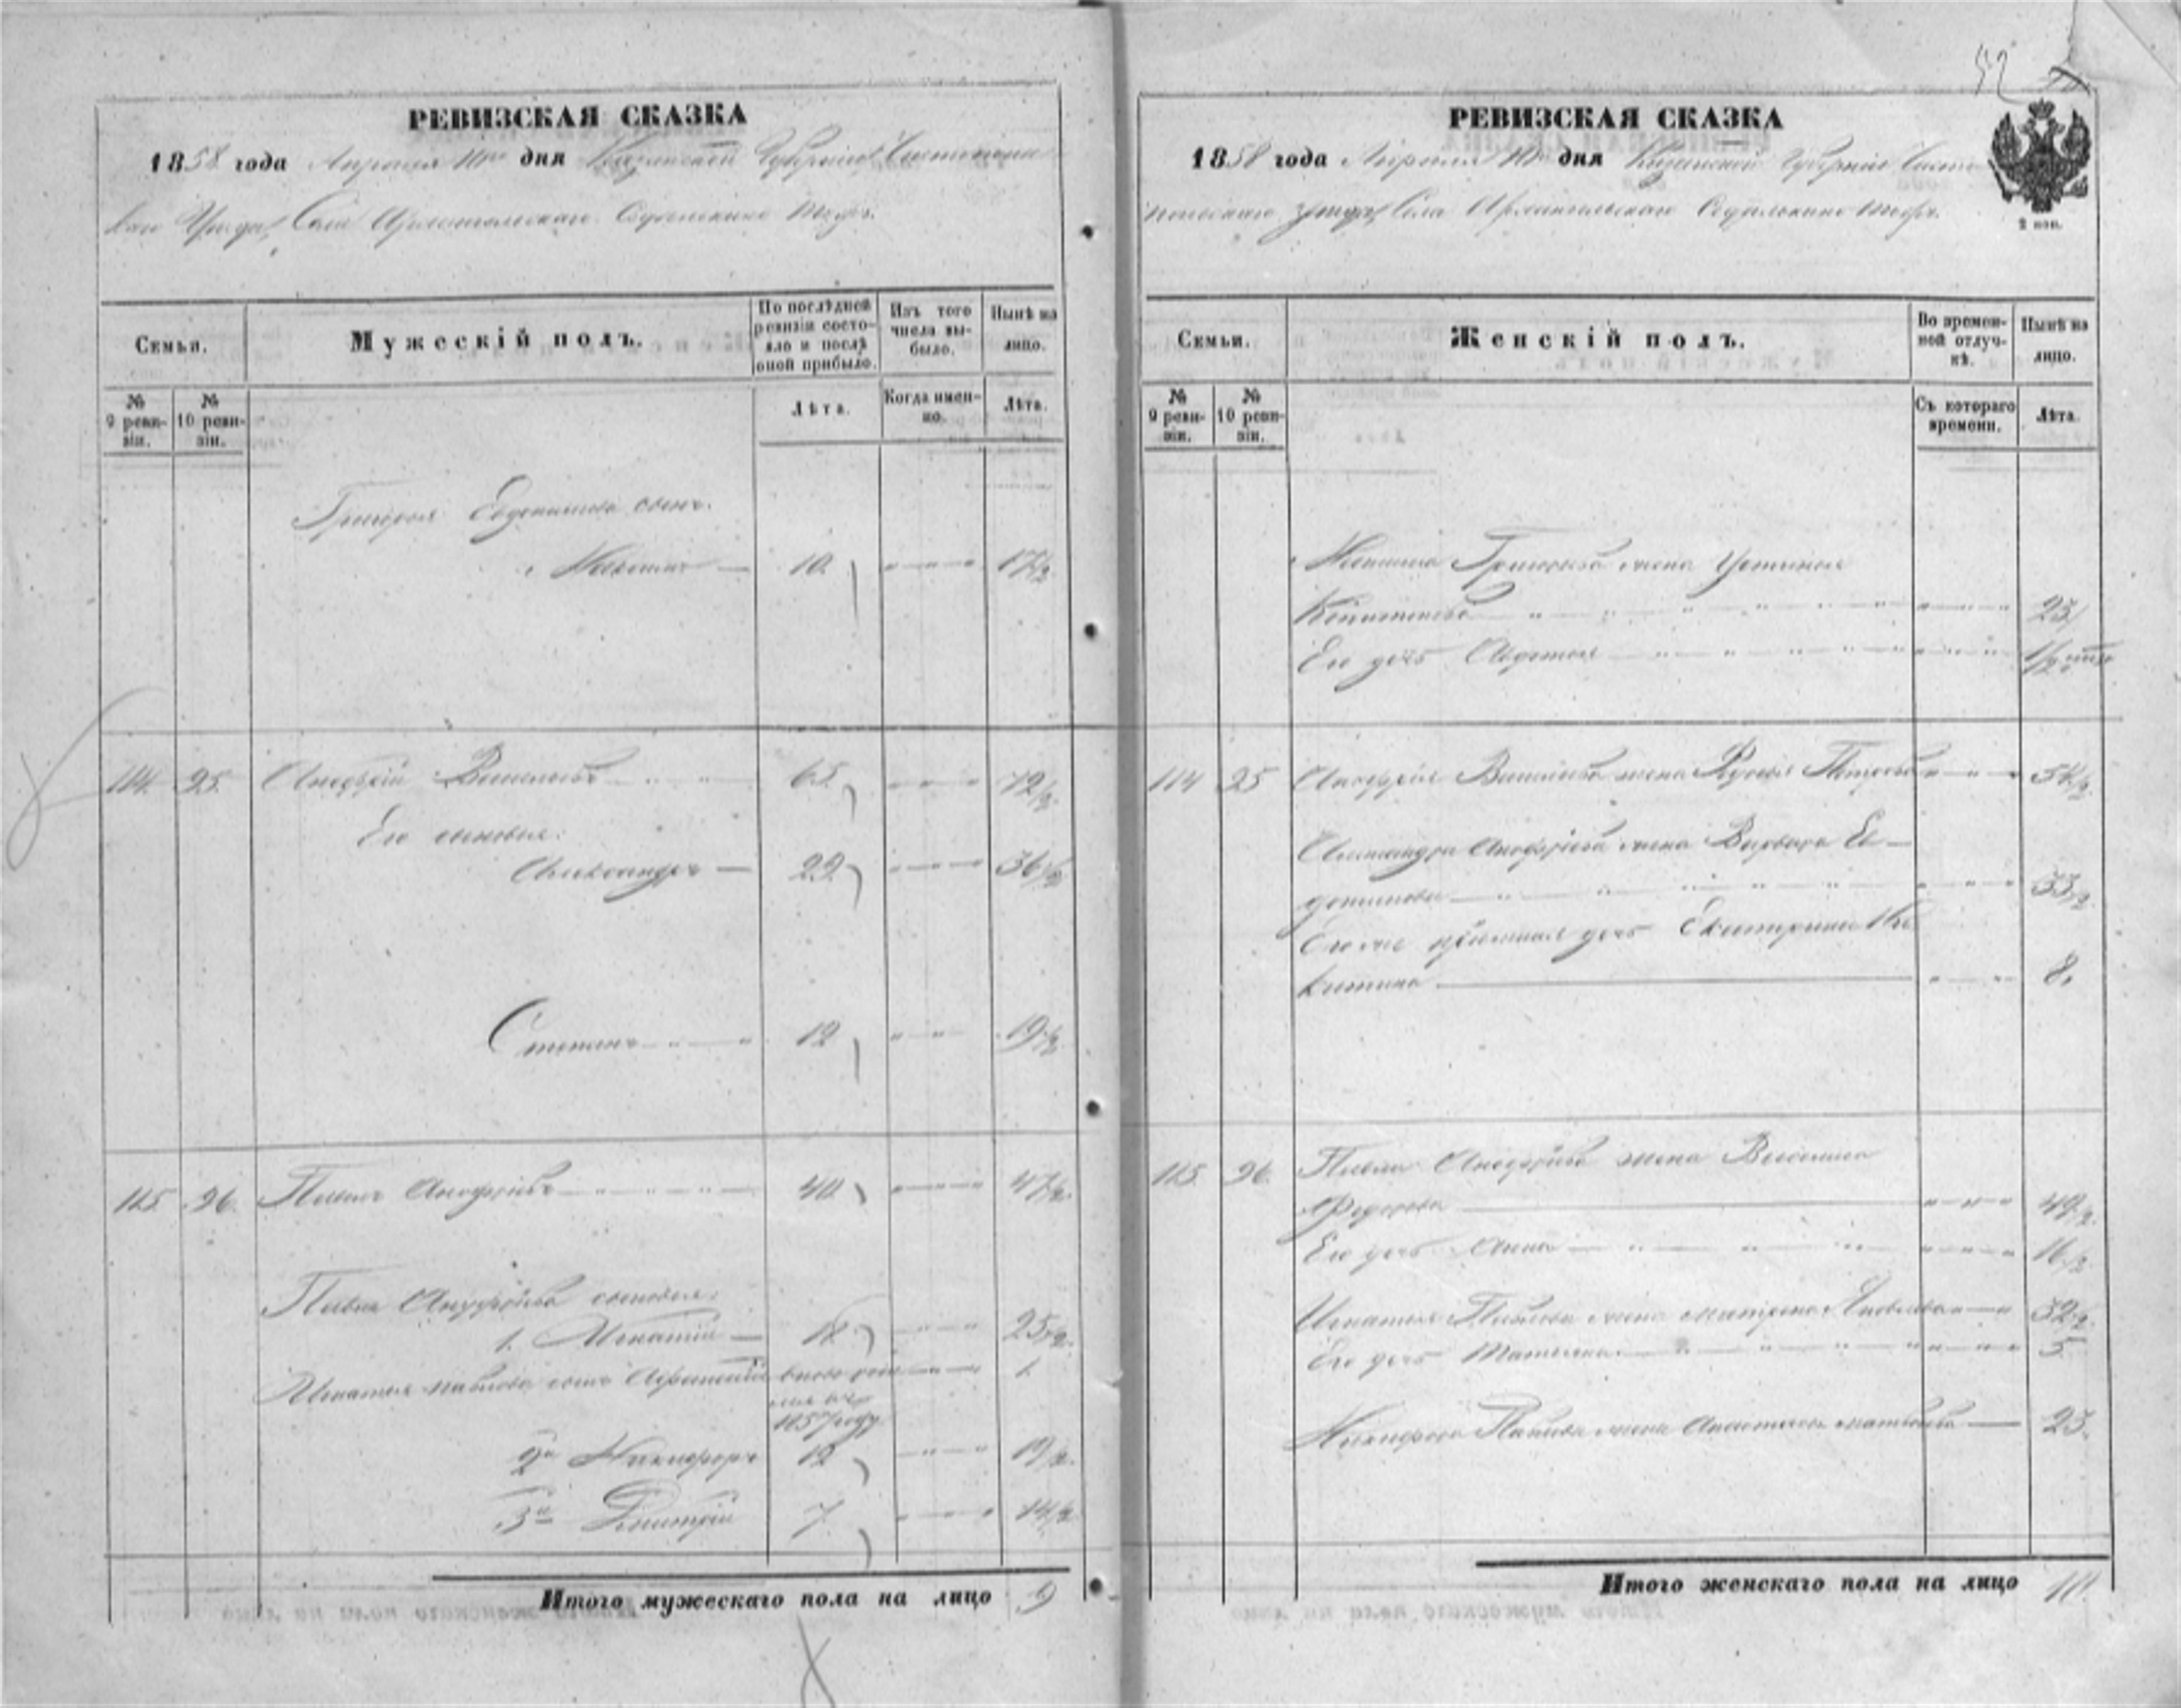 РЕВИЗСКАЯ СКАЗКА
1858 года Апреля 10го дня Казанской Губернии Чистополь
скаго Уезда, Села Архангельскаго
Семьи.
Мужескій полъ.
По послѣдней ревизіи состояло и послѣ оной прибыло.
Изъ того числа выбыло.
Нынѣ на лицо.
№ 9 ревизіи.
№ 10 ревизіи.
Лѣта.
Когда именно.
Лѣта.
Григорья сынъ.
10 17½
114. 95. Анофрій Васильевъ 65 72½
Его сыновья:
Александръ — 29 36½
Степанъ 12 19½
115. 96. Павелъ Анофріевъ 40 47½
Павла Анофріева сыновья:
1. Игнатій — 18 25½
Игнатья Павлова сынъ 1
1857 году
2й Никифоръ 12 19½
3й Дмитрій 7 14½
Итого мужескаго пола на лицо 9
52
РЕВИЗСКАЯ СКАЗКА
1858 года Апреля 10го дня Казанской Губернии Чисто
польскаго уезда, Села Архангельскаго
2 коп.
Семьи.
Женскій полъ.
Во временной отлучкѣ.
Нынѣ на лицо.
№ 9 ревизіи.
№ 10 ревизіи.
Съ котораго времени.
Лѣта.
Григорьева жена Устинья
23
Его дочь Авдотья ½
114 95 Анофрія Васильева жена Петрова 54½
Александра Анофріева жена Варвара Ев-
докимова 33½
Его же приемная дочь Екатерина Ни
китина 8
115. 96. Павла Анофріева жена Василиса
Федорова 49½
Его дочь Анна 16½
Игнатья Павлова жена Матрена Яковлева 32½
Его дочь Татьяна 5
Никифора Павлова жена Анастасья Матвеева 23
Итого женскаго пола на лицо 10.